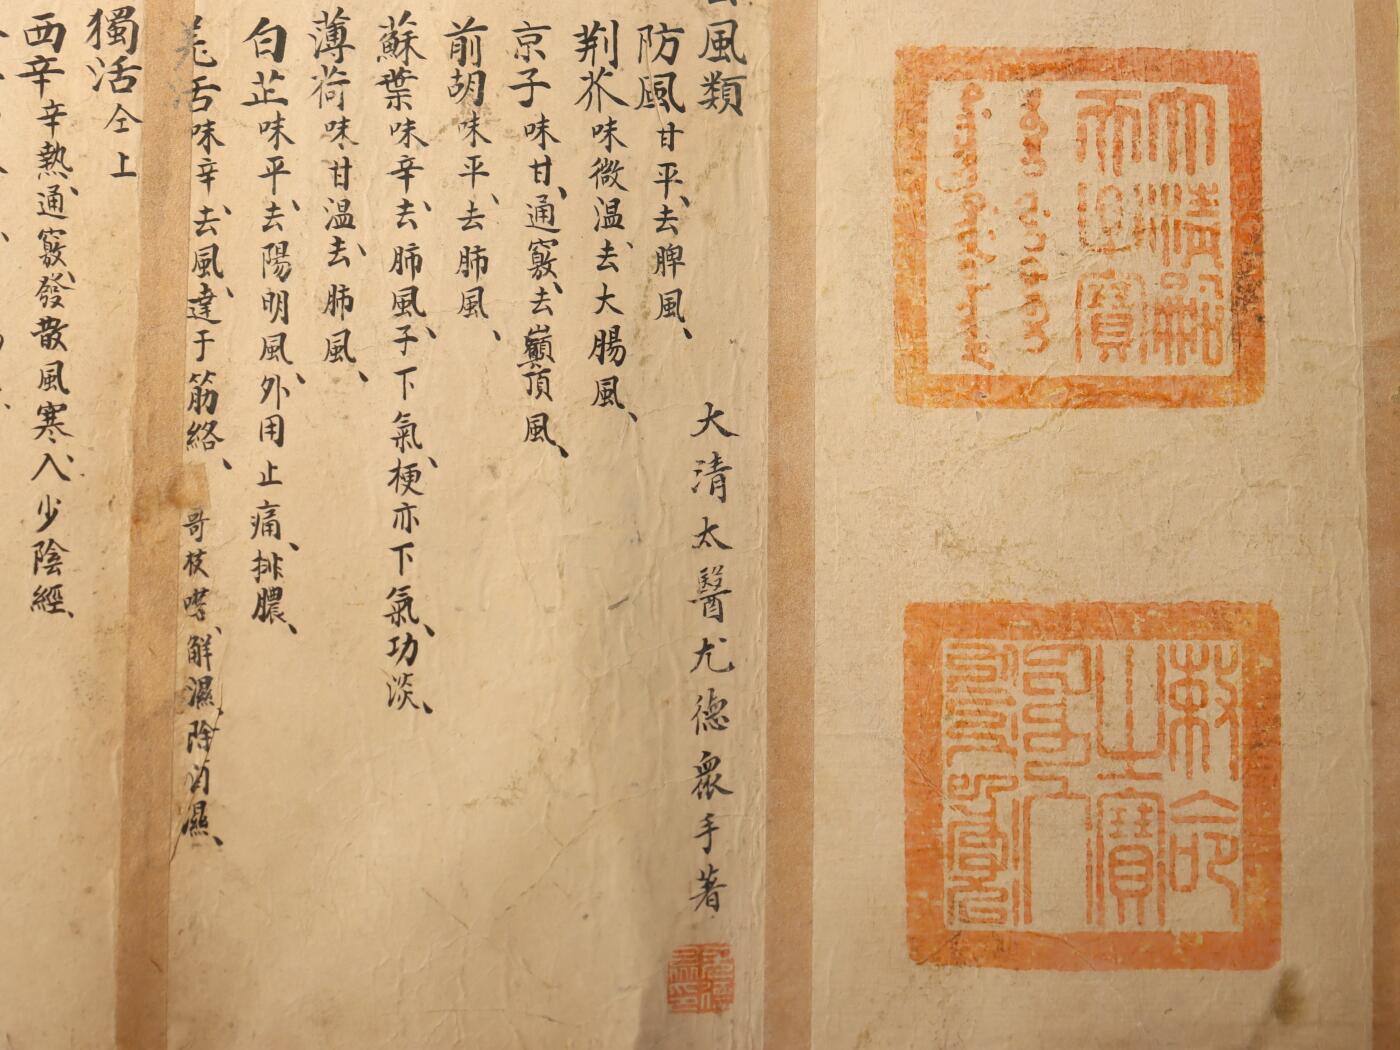 大清嗣天子寶
敕命之寶
風類
大清太醫尤德衆手著
防風甘平、去脾風、
荆芥味微温、去大腸風、
京子味甘、通竅、去巔頂風、
前胡味平、去肺風、
蘇葉味辛、去肺風、子下氣、梗亦下氣、功淡、
薄荷味甘温、去肺風、
白芷味平、去陽明風、外用止痛、排膿、
羌活味辛、去風、達于筋絡、
解濕、除
濕、
獨活仝上
西辛辛熱、通竅、發散風寒、入少陰經、